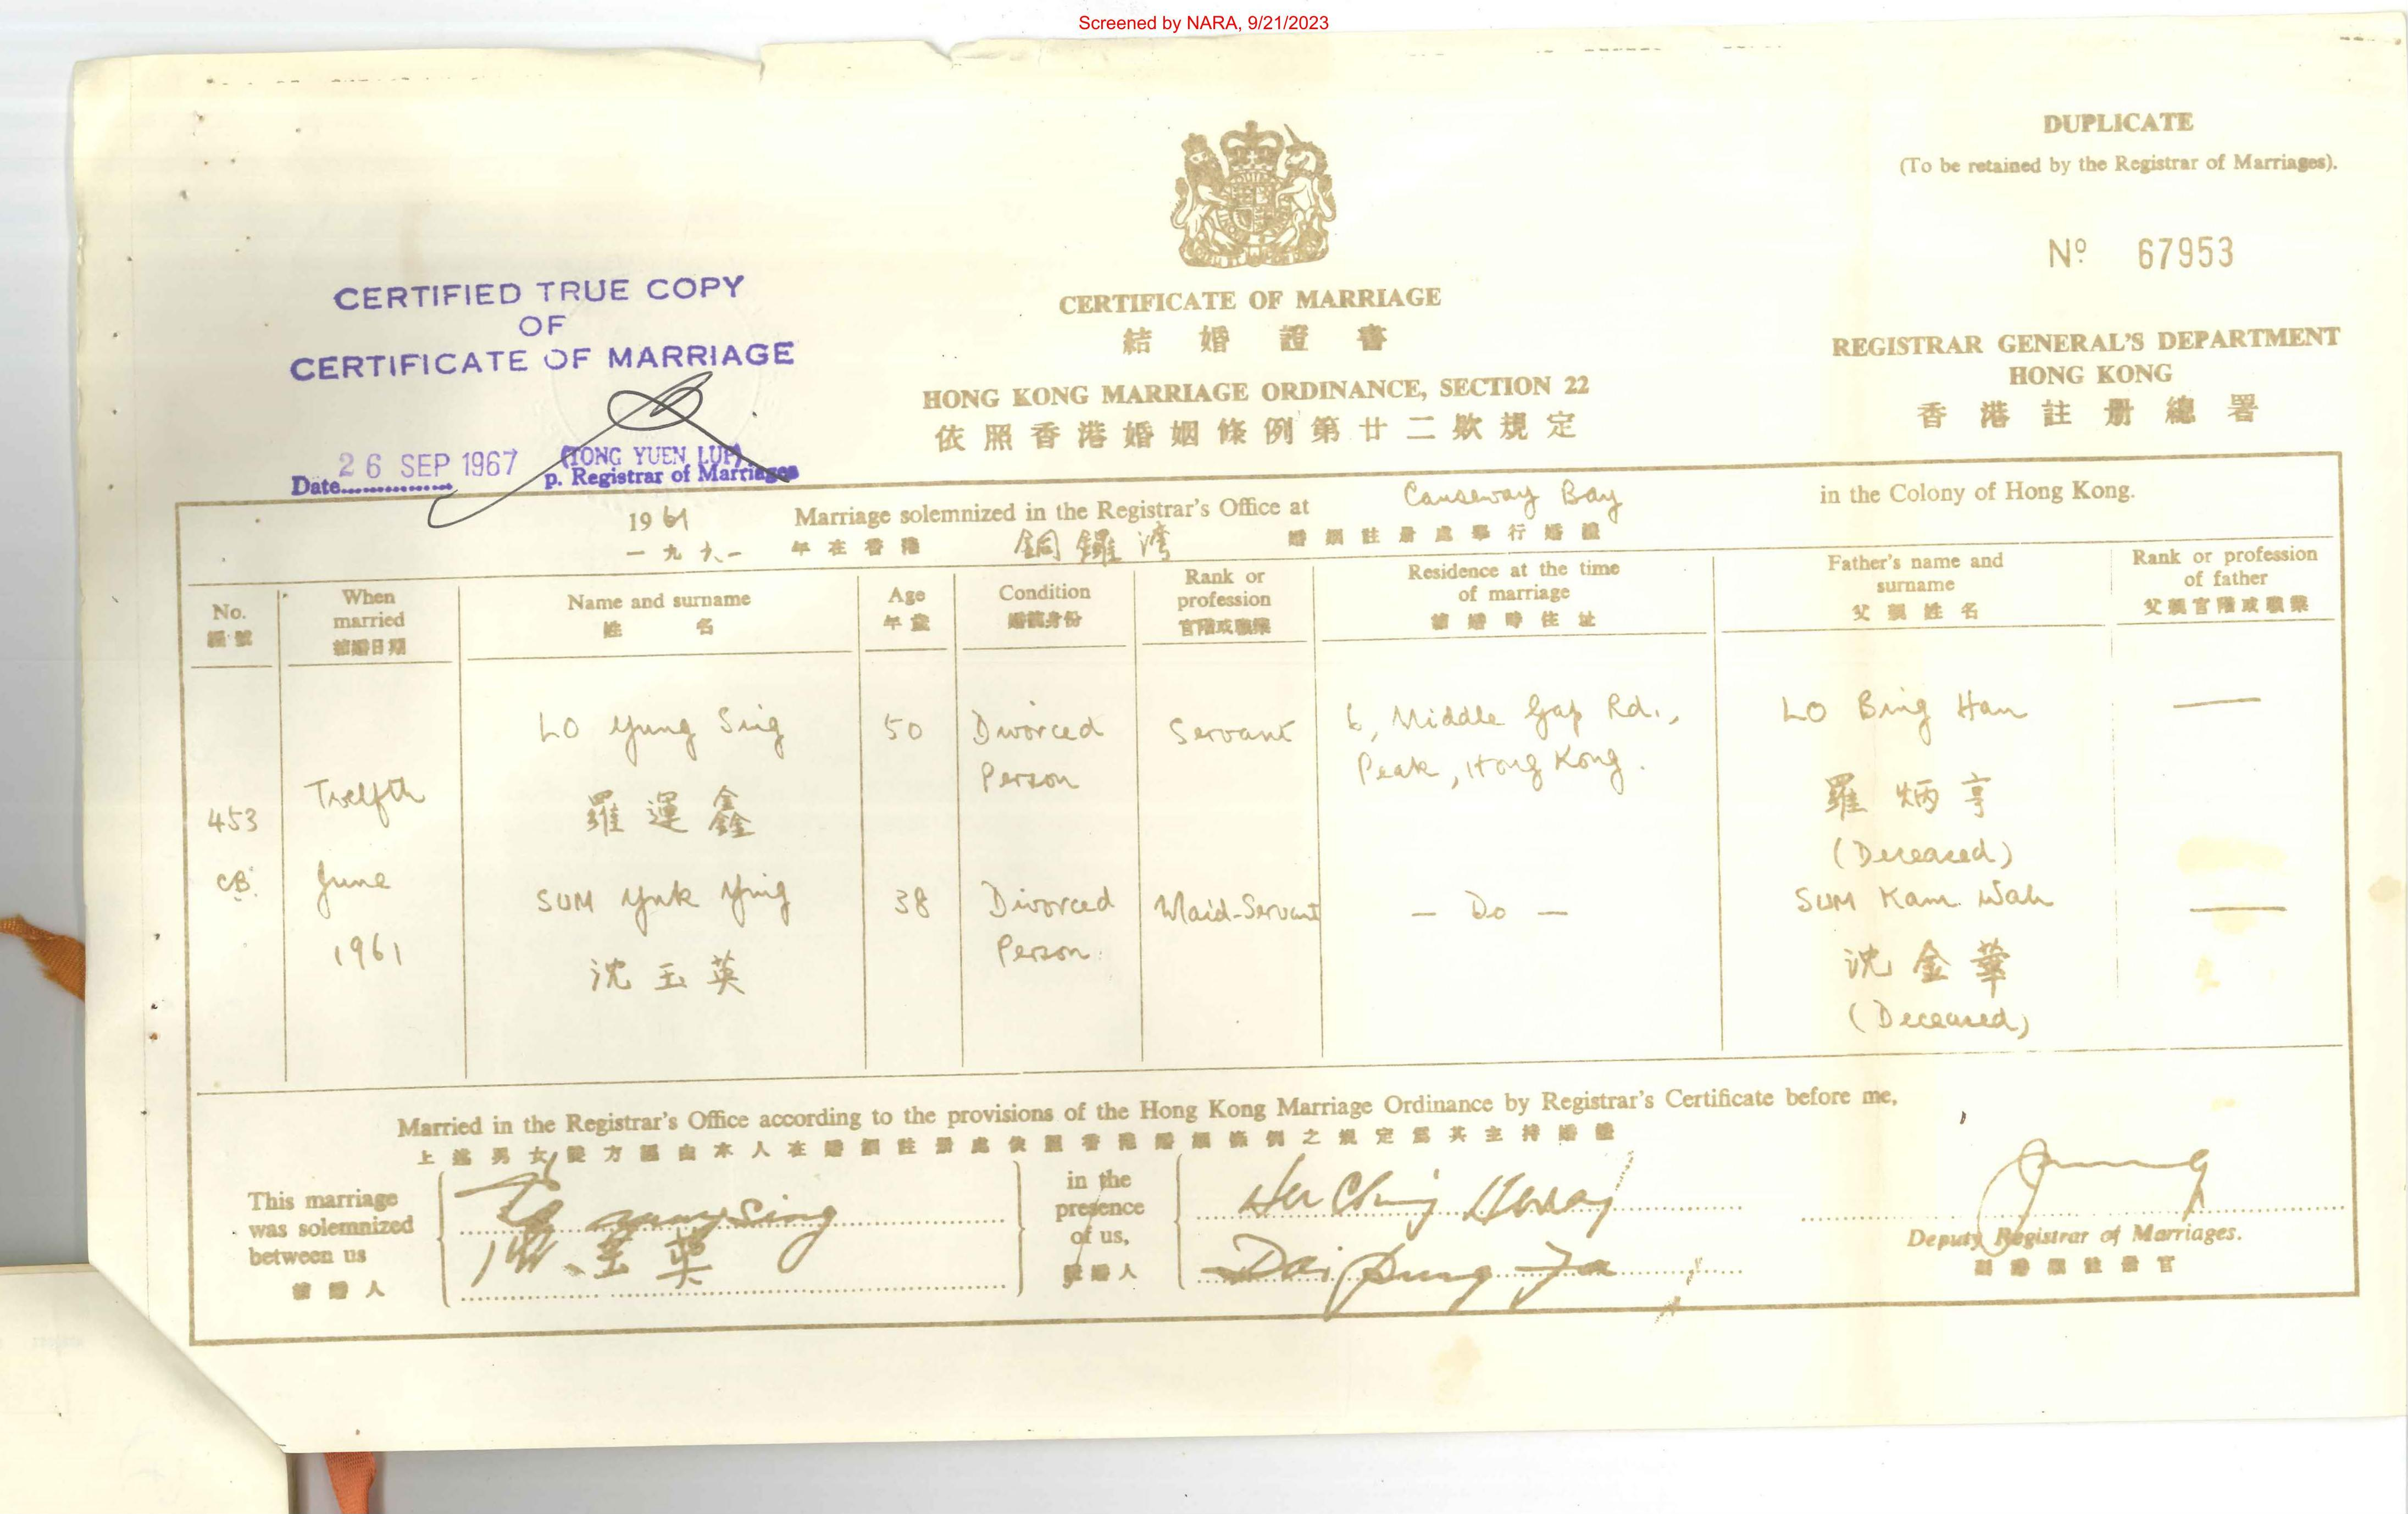 Screened by NARA, 9/21/2023
DUPLICATE
(To be retained by the Registrar of Marriages).
Nº 67953
CERTIFIED TRUE COPY
OF
CERTIFICATE OF MARRIAGE
Date 26 SEP 1967
(TONG YUEN LUP)
p. Registrar of Marriages
CERTIFICATE OF MARRIAGE
結婚證書
HONG KONG MARRIAGE ORDINANCE, SECTION 22
依照香港婚姻條例第廿二欵規定
REGISTRAR GENERAL'S DEPARTMENT
HONG KONG
香港註册總署
1961 Marriage solemnized in the Registrar's Office at Causeway Bay in the Colony of Hong Kong.
一九六一 年在香港 銅鑼灣 婚姻註册處舉行婚禮
No.
編號
When
married
結婚日期
Name and surname
姓名
Age
年歲
Condition
婚前身份
Rank or
profession
官階或職業
Residence at the time
of marriage
結婚時住址
Father's name and
surname
父親姓名
Rank or profession
of father
父親官階或職業
453
CB.
Twelfth
June
1961
LO Yung Sing
羅運鑫
50
Divorced
Person
Servant
6, Middle Gap Rd.,
Peak, Hong Kong.
LO Bing Han
羅炳亨
(Deceased)
—
SUM Yuk Ying
沈玉英
38
Divorced
Person
Maid-Servant
— Do —
SUM Kam Wah
沈金華
(Deceased)
—
Married in the Registrar's Office according to the provisions of the Hong Kong Marriage Ordinance by Registrar's Certificate before me,
上述男女雙方經由本人在婚姻註册處依照香港婚姻條例之規定爲其主持婚禮
This marriage
was solemnized
between us
結婚人
Sing
沈玉英
in the
presence
of us,
證婚人
Dai
Deputy Registrar of Marriages.
副婚姻註册官